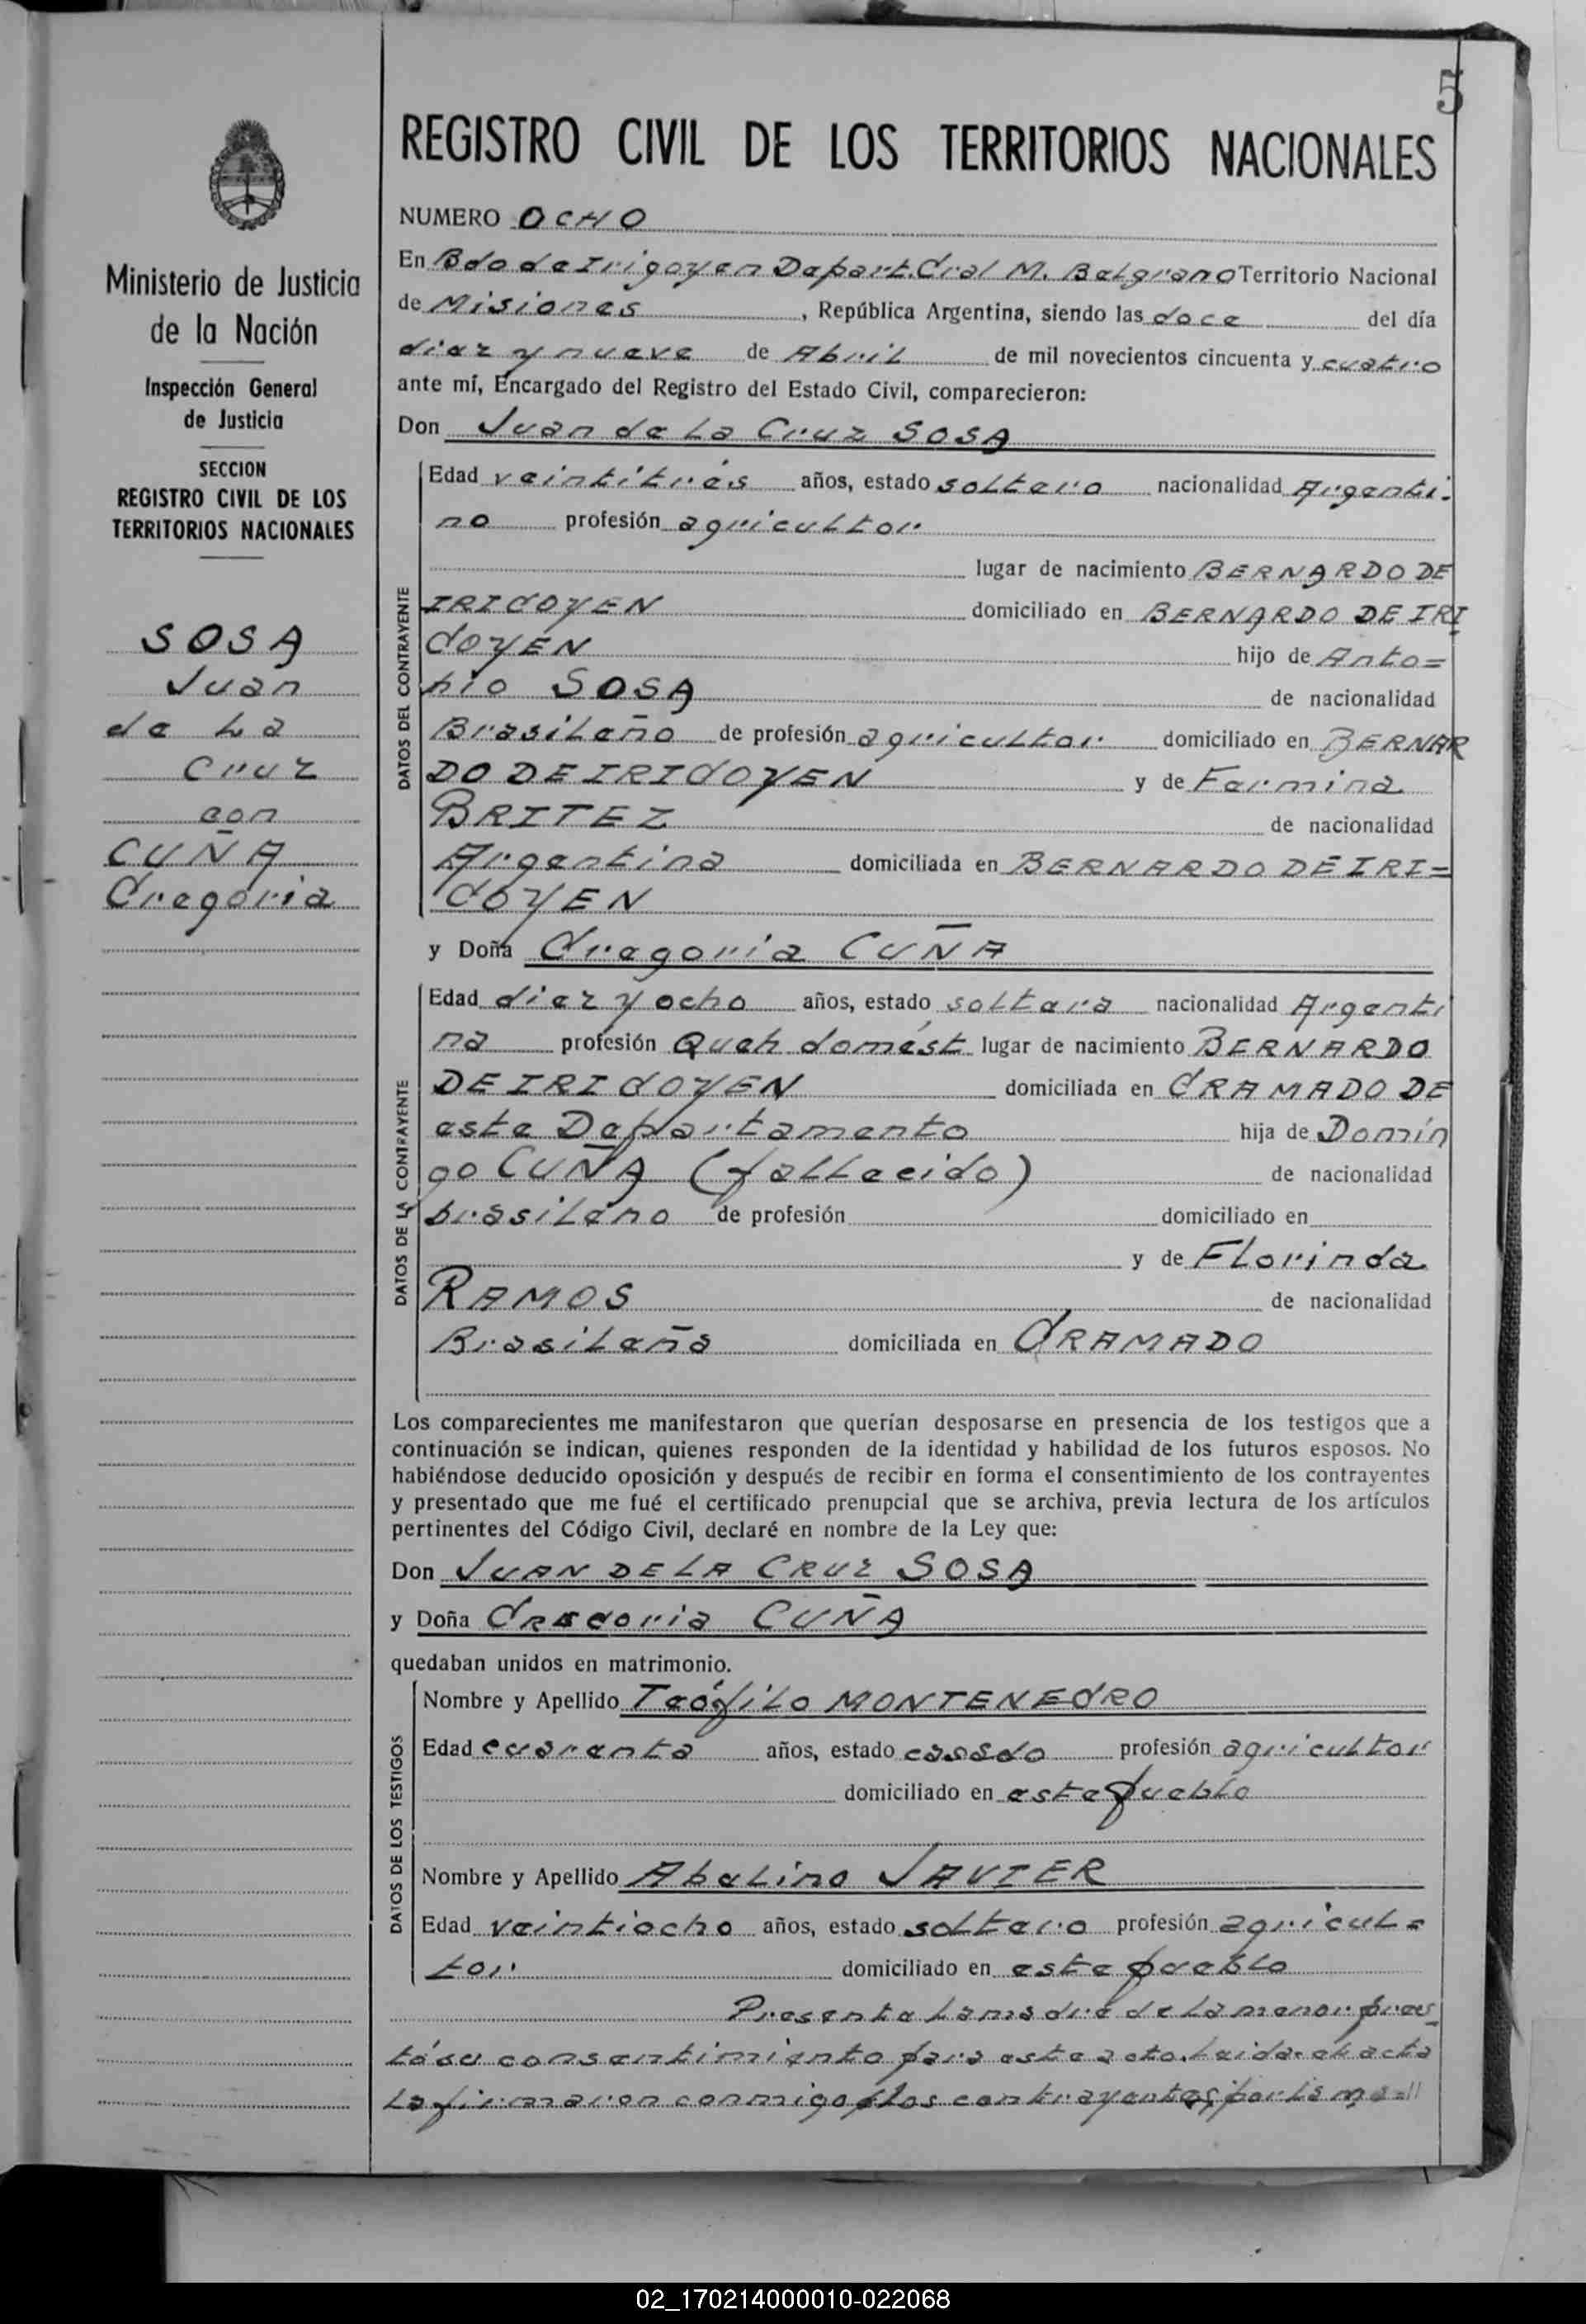 5
REGISTRO CIVIL DE LOS TERRITORIOS NACIONALES
Ministerio de Justicia
de la Nación
Inspección General
de Justicia
SECCION
REGISTRO CIVIL DE LOS
TERRITORIOS NACIONALES
SOSA
Juan
de La
Cruz
con
CUÑA
Gregoria
NUMERO OCHO
En Bdo de Irigoyen Depart. Gral M. Belgrano Territorio Nacional
de Misiones, República Argentina, siendo las doce del día
diez y nueve de Abril de mil novecientos cincuenta y cuatro
ante mí, Encargado del Registro del Estado Civil, comparecieron:
Don Juan de La Cruz SOSA
DATOS DEL CONTRAYENTE
Edad veintitrés años, estado soltero nacionalidad Argenti-
no profesión agricultor
lugar de nacimiento BERNARDO DE
IRIGOYEN domiciliado en BERNARDO DE IRI
GOYEN hijo de Anto=
nio SOSA de nacionalidad
Brasileño de profesión agricultor domiciliado en BERNAR
DO DE IRIGOYEN y de Fermina
BRITEZ de nacionalidad
Argentina domiciliada en BERNARDO DE IRI=
GOYEN
y Doña Gregoria CUÑA
DATOS DE LA CONTRAYENTE
Edad diez y ocho años, estado soltera nacionalidad Argenti
na profesión Queh domést lugar de nacimiento BERNARDO
DE IRIGOYEN domiciliada en GRAMADO DE
este Departamento hija de Domin
go CUÑA (fallecido) de nacionalidad
brasileño de profesión domiciliado en
y de Florinda
RAMOS de nacionalidad
Brasileña domiciliada en GRAMADO
Los comparecientes me manifestaron que querían desposarse en presencia de los testigos que a
continuación se indican, quienes responden de la identidad y habilidad de los futuros esposos. No
habiéndose deducido oposición y después de recibir en forma el consentimiento de los contrayentes
y presentado que me fué el certificado prenupcial que se archiva, previa lectura de los artículos
pertinentes del Código Civil, declaré en nombre de la Ley que:
Don JUAN DE LA CRUZ SOSA
y Doña Gregoria CUÑA
quedaban unidos en matrimonio.
DATOS DE LOS TESTIGOS
Nombre y Apellido Teófilo MONTENEGRO
Edad cuarenta años, estado casado profesión agricultor
domiciliado en este pueblo
Nombre y Apellido Abelino JAVIER
Edad veintiocho años, estado soltero profesión agricul=
tor domiciliado en este pueblo
Presente La madre de La menor pres_
tó su consentimiento para este acto. Leida el acta
La firmaron conmigo Los contrayentes; por La ma=//
02_170214000010-022068